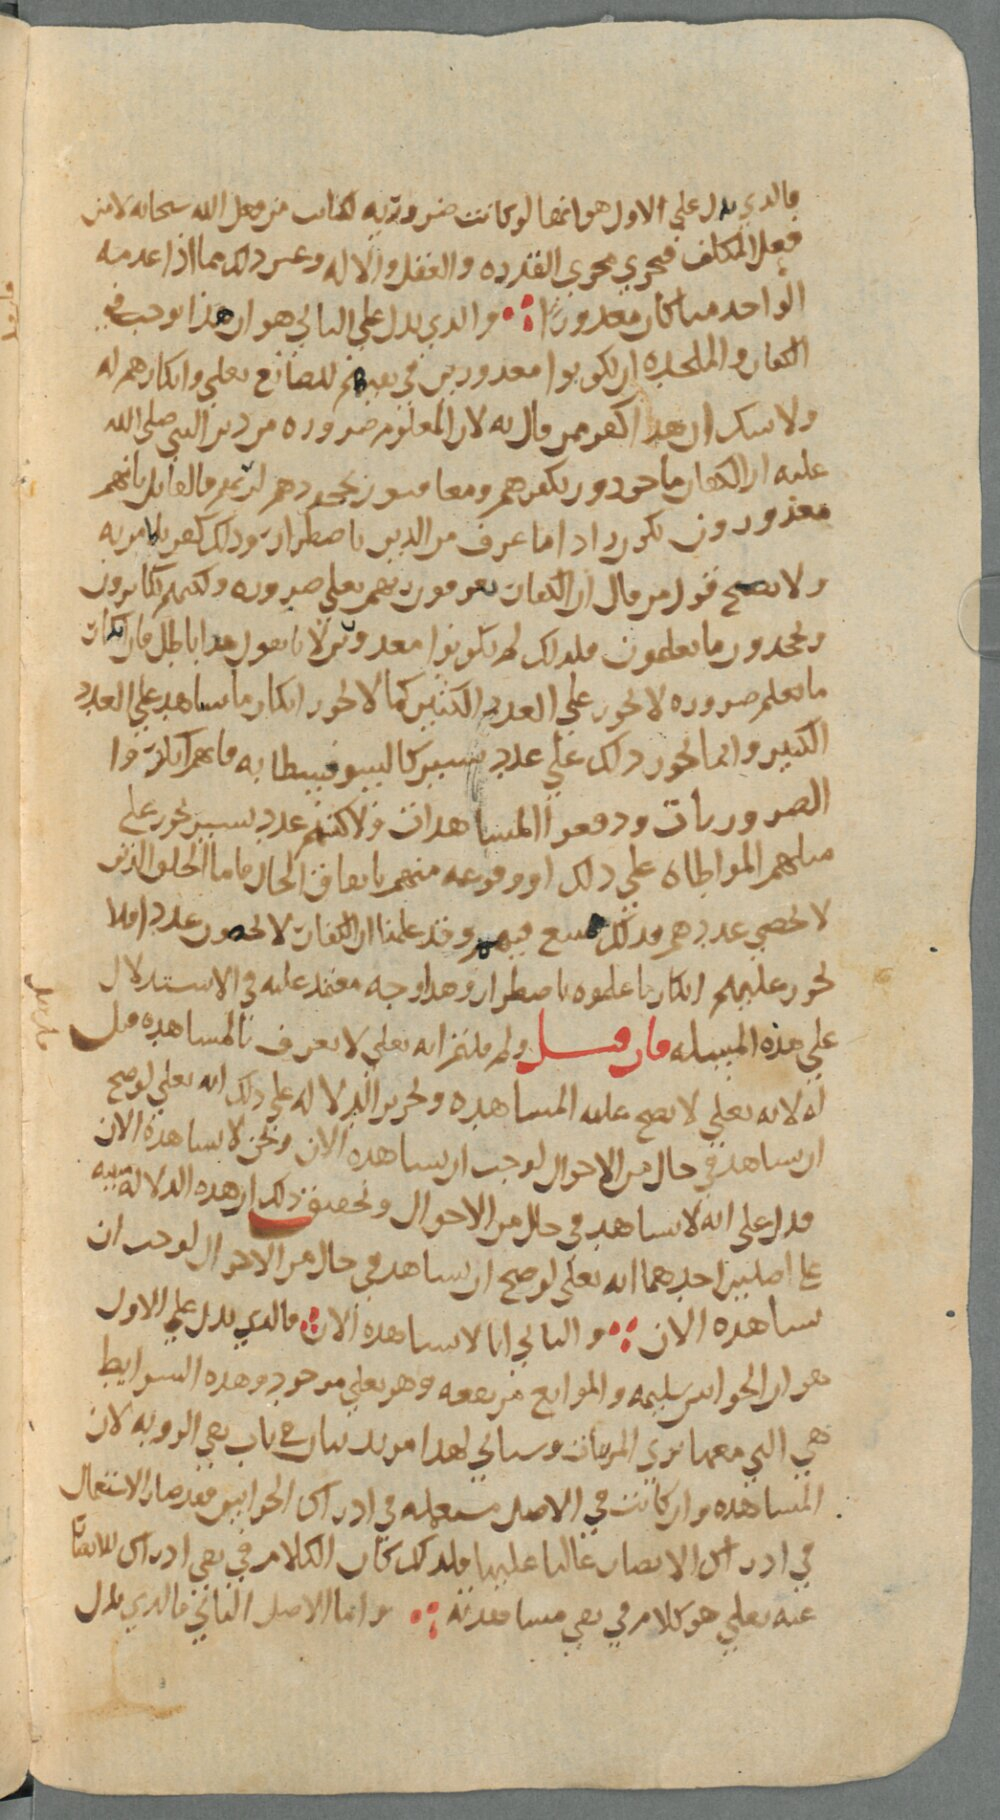 فالذي يدل على الاول هو انها لو كانت ضرورية لكانت من فعل الله سبحانه لا من
فعل المكلف فيجري مجرى القدره والعقل والاله وغير ذلك مما اذا عدمه
الواحد منا كان معذورا والذي يدل على الثاني هو ان هذا يوجب في
الكفار والملحده ان يكونوا معذورين في نفيهم للصانع تعلى وانكارهم له
ولا شك ان هذا كفر ممن قال به لان المعلوم ضروره من دين النبي صلى الله
عليه ان الكفار ماخوذون بكفرهم ومعاقبون بجحدهم فالقايل بانهم
معذورون يكون رادا ما عرف من الدين باضطرار وذلك كفر بلا مريه
ولا يصح قول من قال ان الكفار يعرفون ربهم تعلى ضروره ولكنهم يكابرون
ويجحدون ما يعلمون فلذلك لم يكونوا معذورين لانا نقول هذا باطل فان انكار
ما يعلم ضروره لا يجوز على العدد الكثير كما لا يجوز انكار ما يشاهد على العدد
الكثير وانما يجوز ذلك على عدد يسير كالسوفسطايه فانهم انكروا
الضروريات ودفعوا المشاهدات ولاكنهم عدد يسير يجوز على
مثلهم المواطاه على ذلك او وقوعه منهم باتفاق الحال فاما الخلق الذين
لا يحصى عددهم فذلك ممتنع فيهم وقد علمنا ان الكفار لا يحصون عددا فلا
يجوز عليهم انكار ما علموه باضطرار وهذا وجه معتمد عليه في الاستدلال
على هذه المسله فان قيل ولم قلتم انه تعلى لا يعرف بالمشاهده قيل
له لانه تعلى لا يصح عليه المشاهده وتحرير الدلاله على ذلك انه تعلى لو صح
ان يشاهد في حال من الاحوال لوجب ان نشاهده الان ونحن لا نشاهده الان
فدل على انه لا يشاهد في حال من الاحوال وتحقيق ذلك ان هذه الدلاله مبنيه
على اصلين احدهما انه تعلى لو صح ان يشاهد في حال من الاحوال لوجب ان
نشاهده الان والثاني انا لا نشاهده الان فالذي يدل على الاول
هو ان الحواس سليمه والموانع مرتفعه وهو تعلى موجود وهذه الشرايط
هي التي معها نرى المرئيات وسياتي لهذا مزيد بيان في باب نفي الرويه لان
المشاهده وان كانت في الاصل مستعمله في ادراك الحواس فقد صار الاستعمال
في ادراك الابصار غالبا عليها فلذلك كان الكلام في نفي ادراك الابصار
عنه تعلى هو كلام في نفي مشاهدته واما الاصل الثاني فالذي يدل